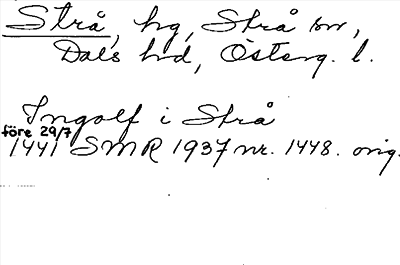 Strå, hg, Strå sn,
Dals hd, Österg. l.
Ingolf i Strå
före 29/7
1441 SMR 1937 nr. 1448. orig.